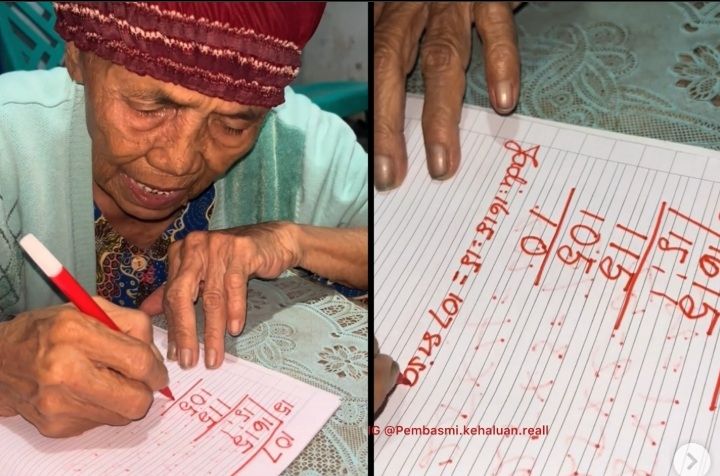 15 1615 107
15
115
105
1615
15 -
115
105
10
Jadi: 1615 : 15 = 107 sisa
IG @Pembasmi.kehaluan.reall